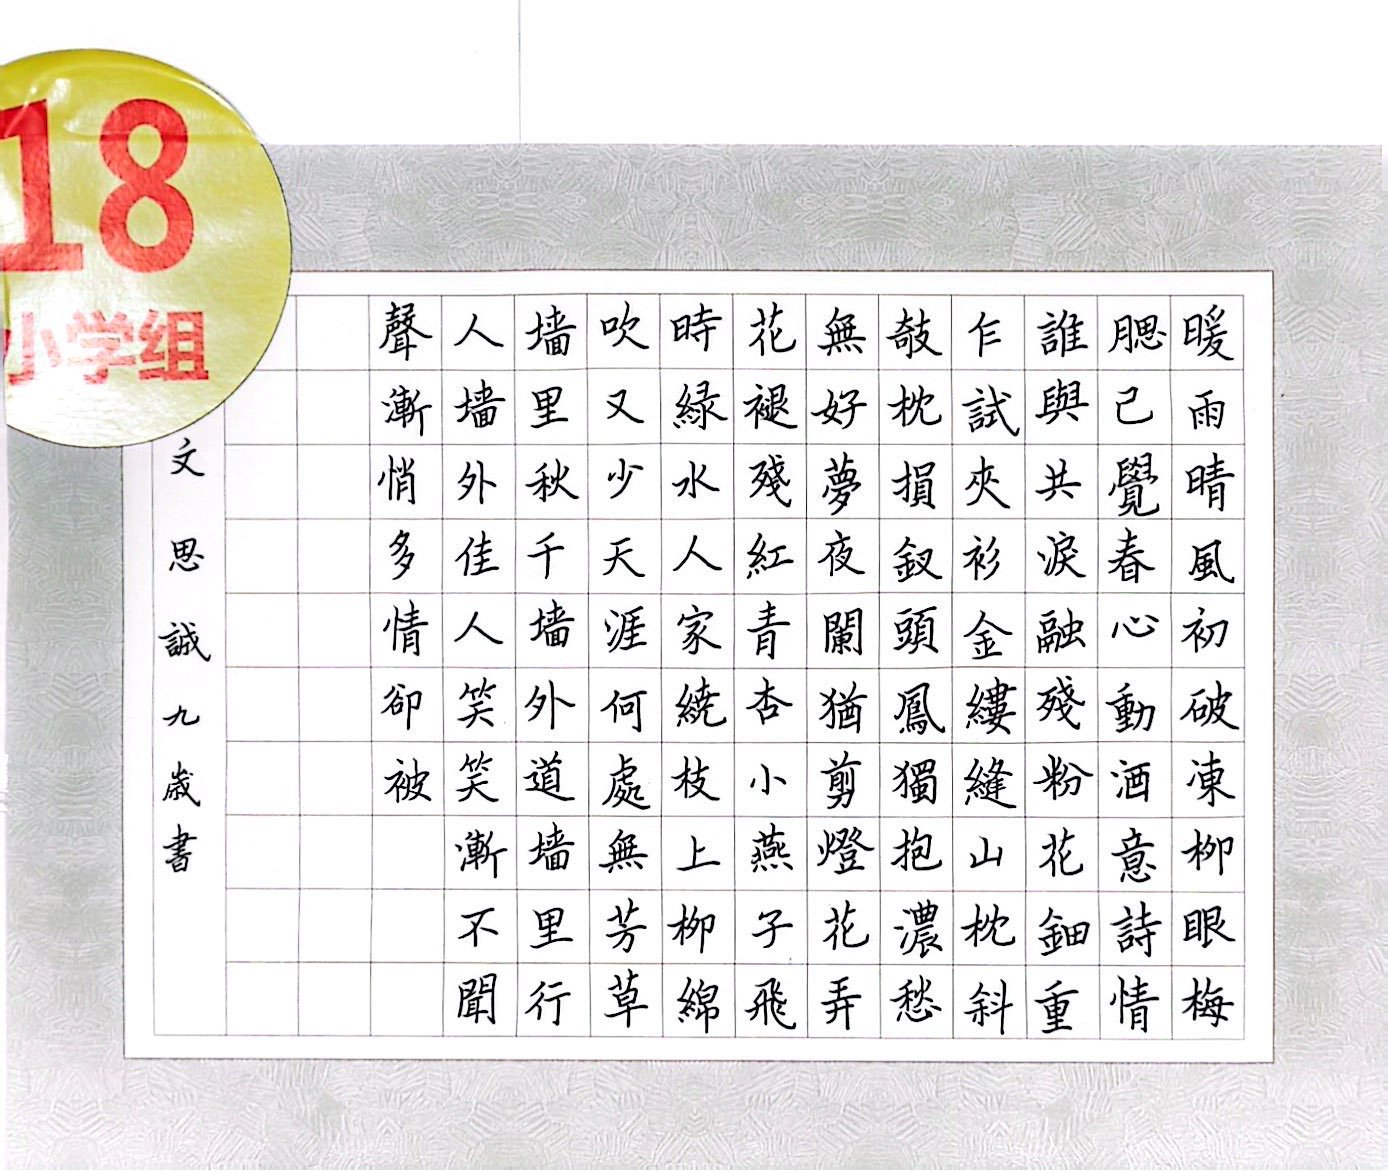 18
小学组
暖雨晴風初破凍柳眼梅
腮己覺春心動酒意詩情
誰與共淚融殘粉花鈿重
乍試夾衫金縷縫山枕斜
攲枕損釵頭鳳獨抱濃愁
無好夢夜闌猶剪燈花弄
花褪殘紅青杏小燕子飛
時緑水人家繞枝上柳綿
吹又少天涯何處無芳草
墙里秋千墙外道墙里行
人墙外佳人笑笑漸不聞
聲漸悄多情卻被
文思誠九歲書